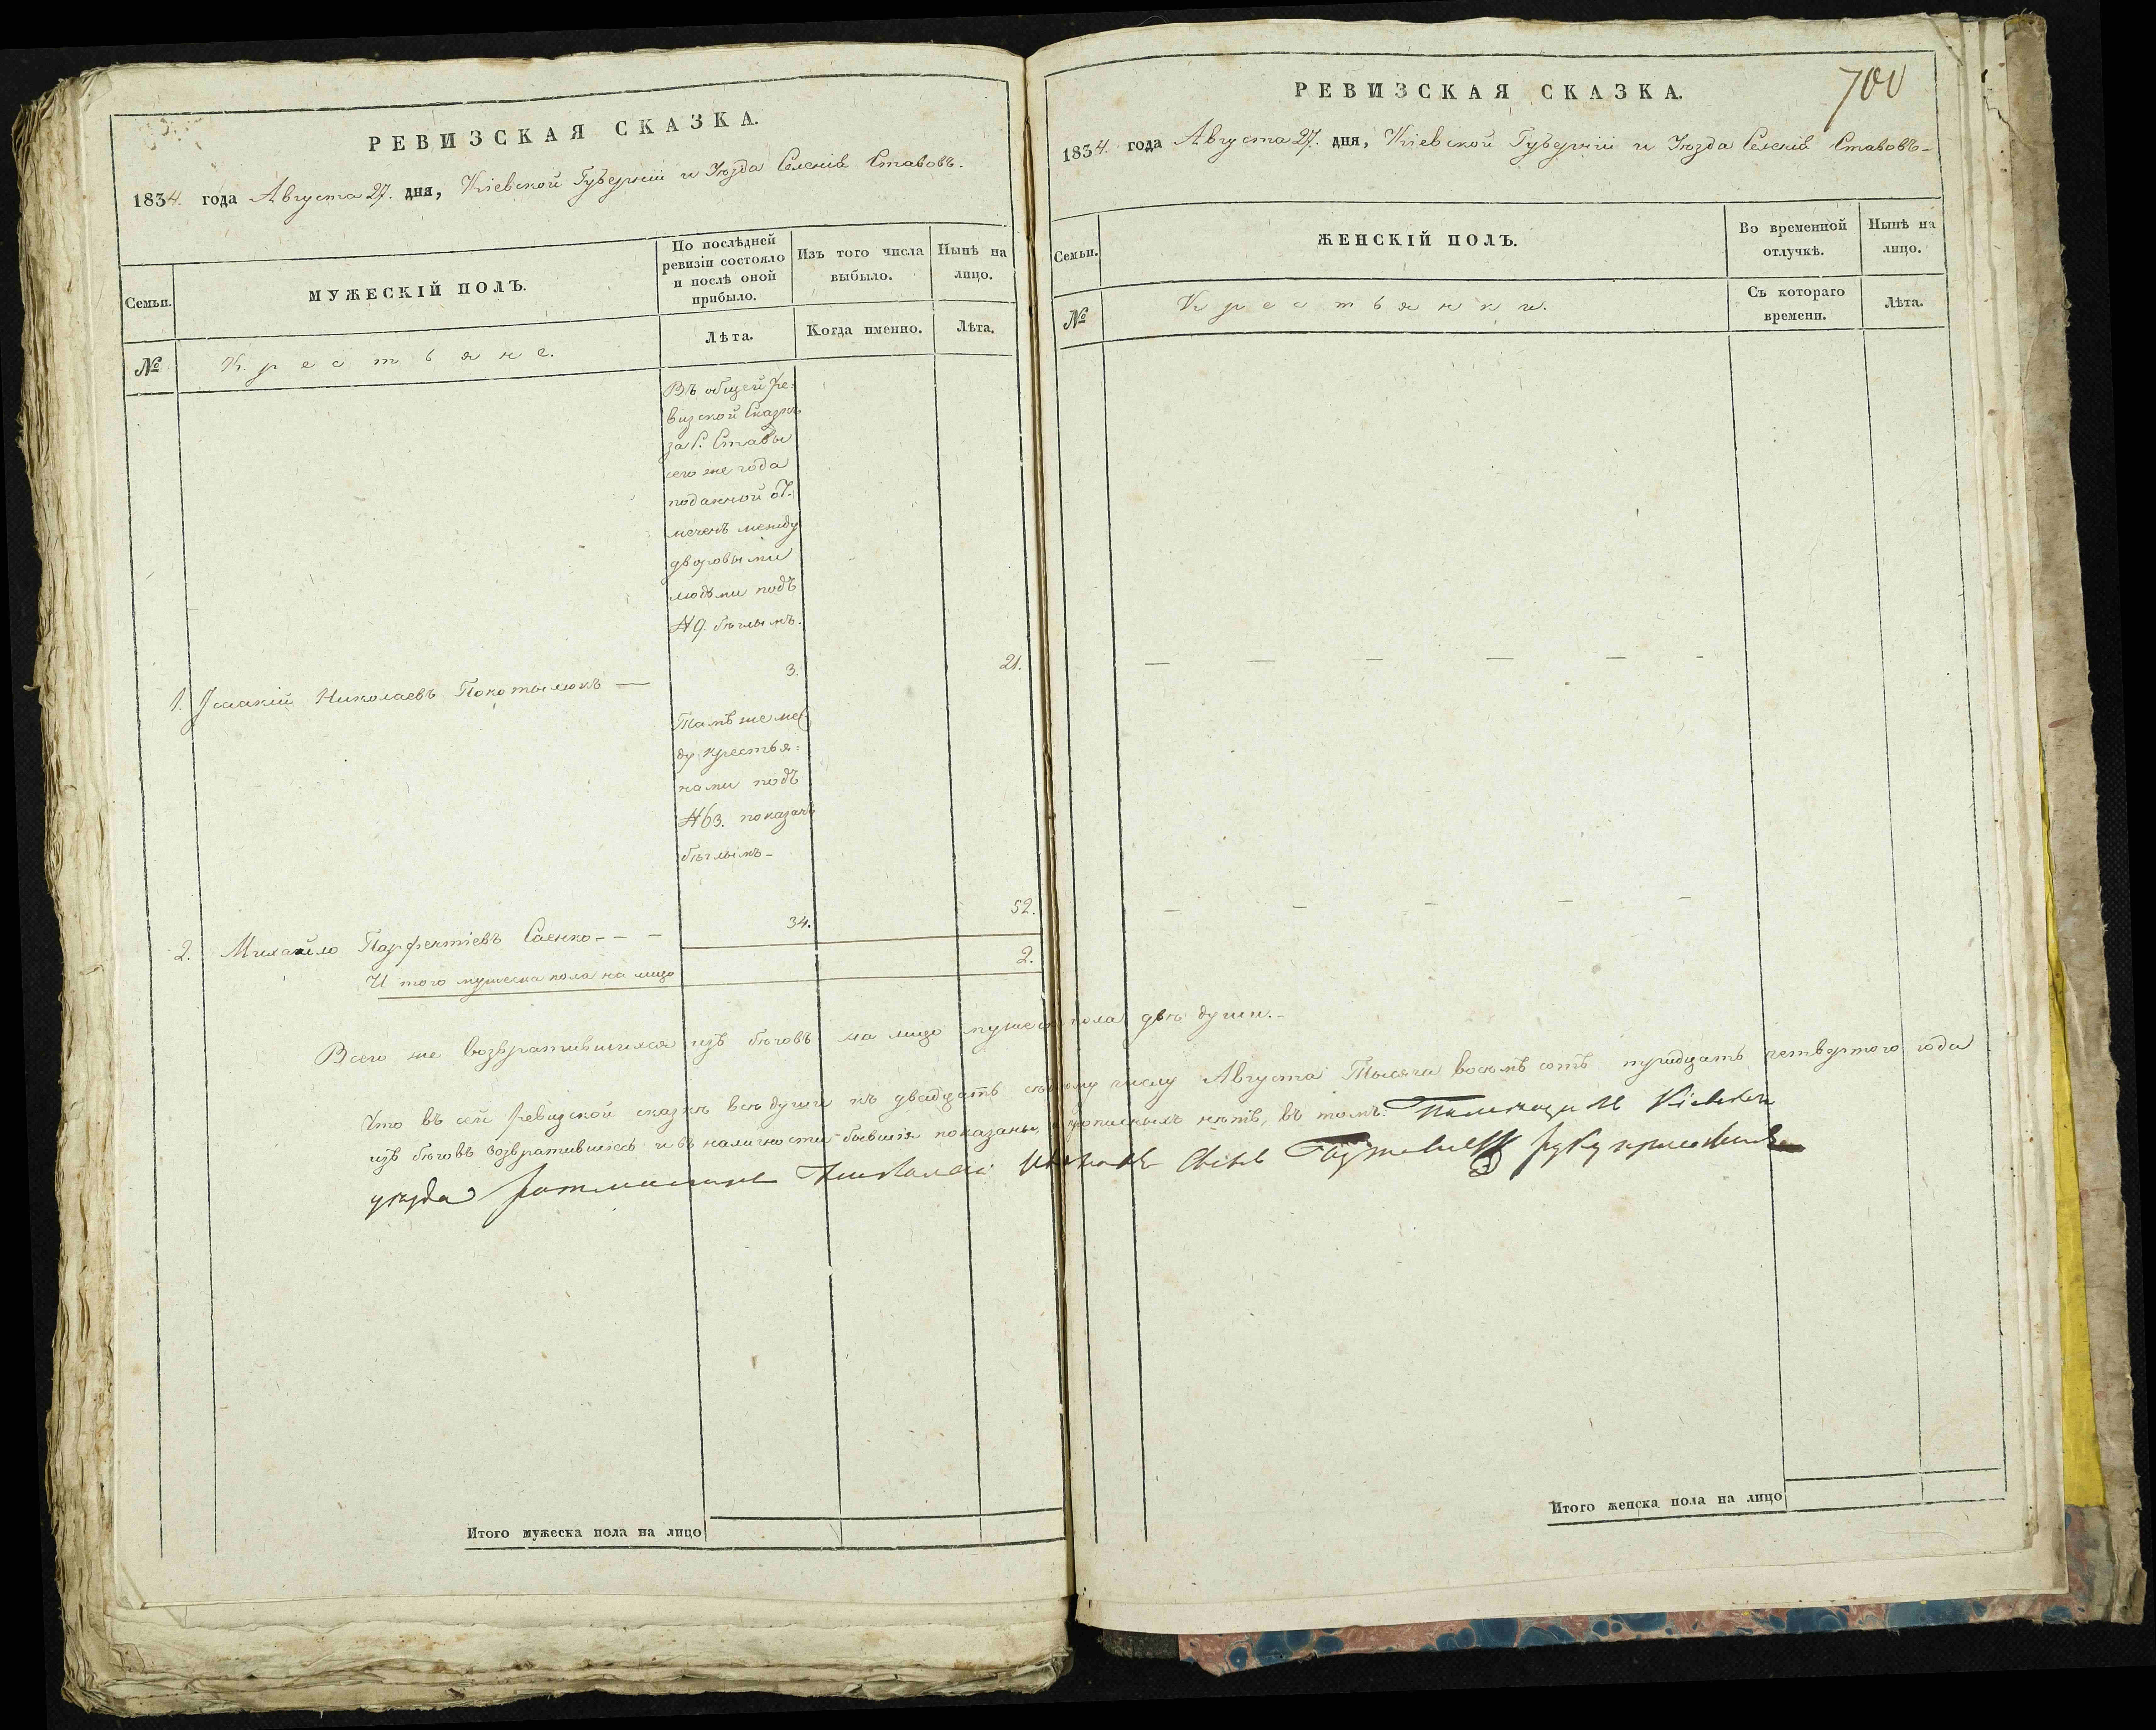 РЕВИЗСКАЯ СКАЗКА.
1834. года Августа 27. дня, Кіевской Губерніи и Уѣзда Селенія Ставовъ.
Семьи.
МУЖЕСКІЙ ПОЛЪ.
По послѣдней
ревизіи состояло
и послѣ оной
прибыло.
Изъ того числа
выбыло.
Нынѣ на
лицо.
№
Крестьяне.
Лѣта.
Когда именно.
Лѣта.
Въ общей Ре-
визской Сказкѣ
за С. Ставы
сего же года
поданной от-
мечень между
дворовыми
людьми подъ
№ 9. бѣглымъ.
1. Исаакій Николаевъ Покотылюкъ —
3.
21.
Тамъ же меж
ду крестья-
нами подъ
№ 63. показанъ
бѣглымъ-
2. Михайло Парфентіевъ Саенко - - -
34.
52.
И того мужеска пола на лицо
2.
Всего же возвратившихся изъ бѣговъ на лицо мужеска пола двѣ души.-
Что въ сей Ревизской сказкѣ всѣ души къ двадцать седьмому числу Августа Тысяча восемь сотъ тридцать четвертого года
изъ бѣговъ возвратившіесь и въ наличности бывшія показаны, и прописныхъ нѣтъ, въ томъ. Кіевскаго
уезда Ротмистръ Николай руку приложилъ
Итого мужеска пола на лицо
700
РЕВИЗСКАЯ СКАЗКА.
1834. года Августа 27. дня, Кіевской Губерніи и Уѣзда Селенія Ставовъ-
Семьи.
ЖЕНСКІЙ ПОЛЪ.
Во временной
отлучкѣ.
Нынѣ на
лицо.
№
Крестьянки.
Съ котораго
времени.
Лѣта.
— — — — — -
— — — — —
Итого женска пола на лицо